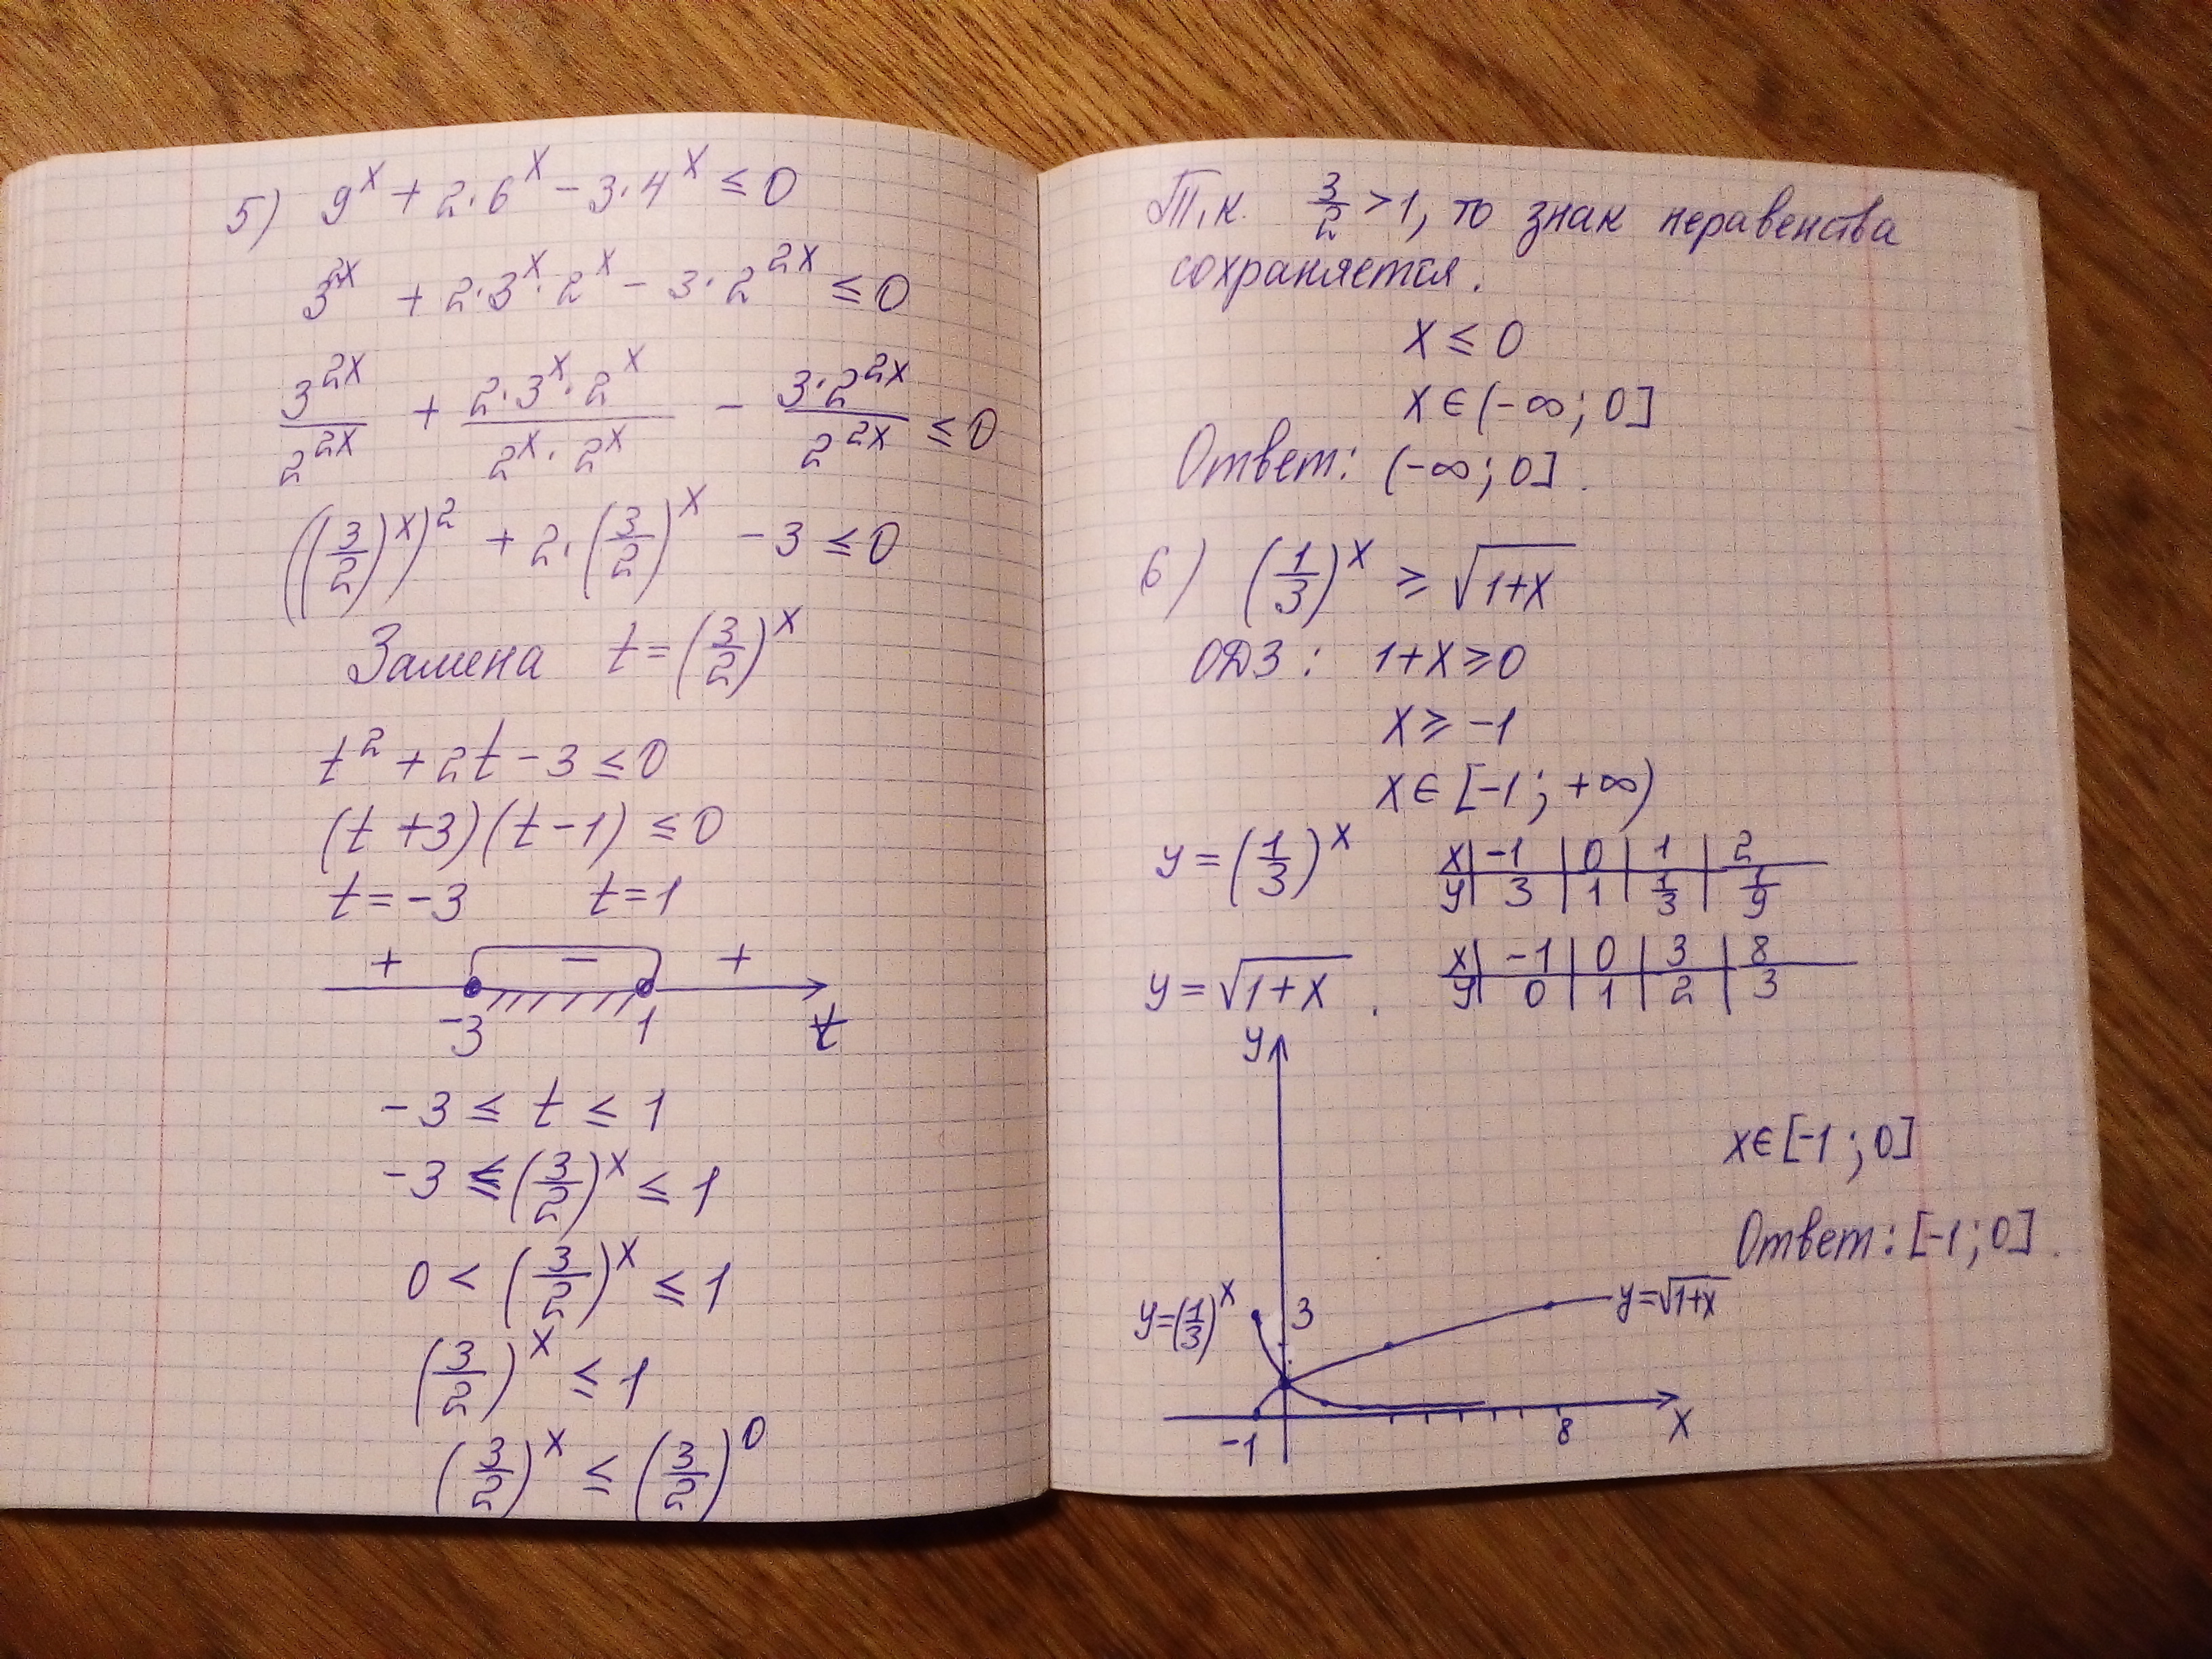 5) 9^x + 2·6^x − 3·4^x ≤ 0
3^2x + 2·3^x·2^x − 3·2^2x ≤ 0
3^2x/2^2x + 2·3^x·2^x/2^x·2^x − 3·2^2x/2^2x ≤ 0
((3/2)^x)^2 + 2·(3/2)^x − 3 ≤ 0
Замена t = (3/2)^x
t^2 + 2t − 3 ≤ 0
(t + 3)(t − 1) ≤ 0
t = −3 t = 1
+ − +
−3 1 t
−3 ≤ t ≤ 1
−3 ≤ (3/2)^x ≤ 1
0 < (3/2)^x ≤ 1
(3/2)^x ≤ 1
(3/2)^x ≤ (3/2)^0
Т.к. 3/2 > 1, то знак неравенства
сохраняется.
x ≤ 0
x ∈ (−∞; 0]
Ответ: (−∞; 0].
6) (1/3)^x ≥ √1+x
ОДЗ: 1+x ≥ 0
x ≥ −1
x ∈ [−1; +∞)
y = (1/3)^x x | −1 | 0 | 1 | 2
y | 3 | 1 | 1/3 | 1/9
y = √1+x. x | −1 | 0 | 3 | 8
y | 0 | 1 | 2 | 3
y
x ∈ [−1; 0]
Ответ: [−1; 0].
y=(1/3)^x 3 y=√1+x
−1 8 x